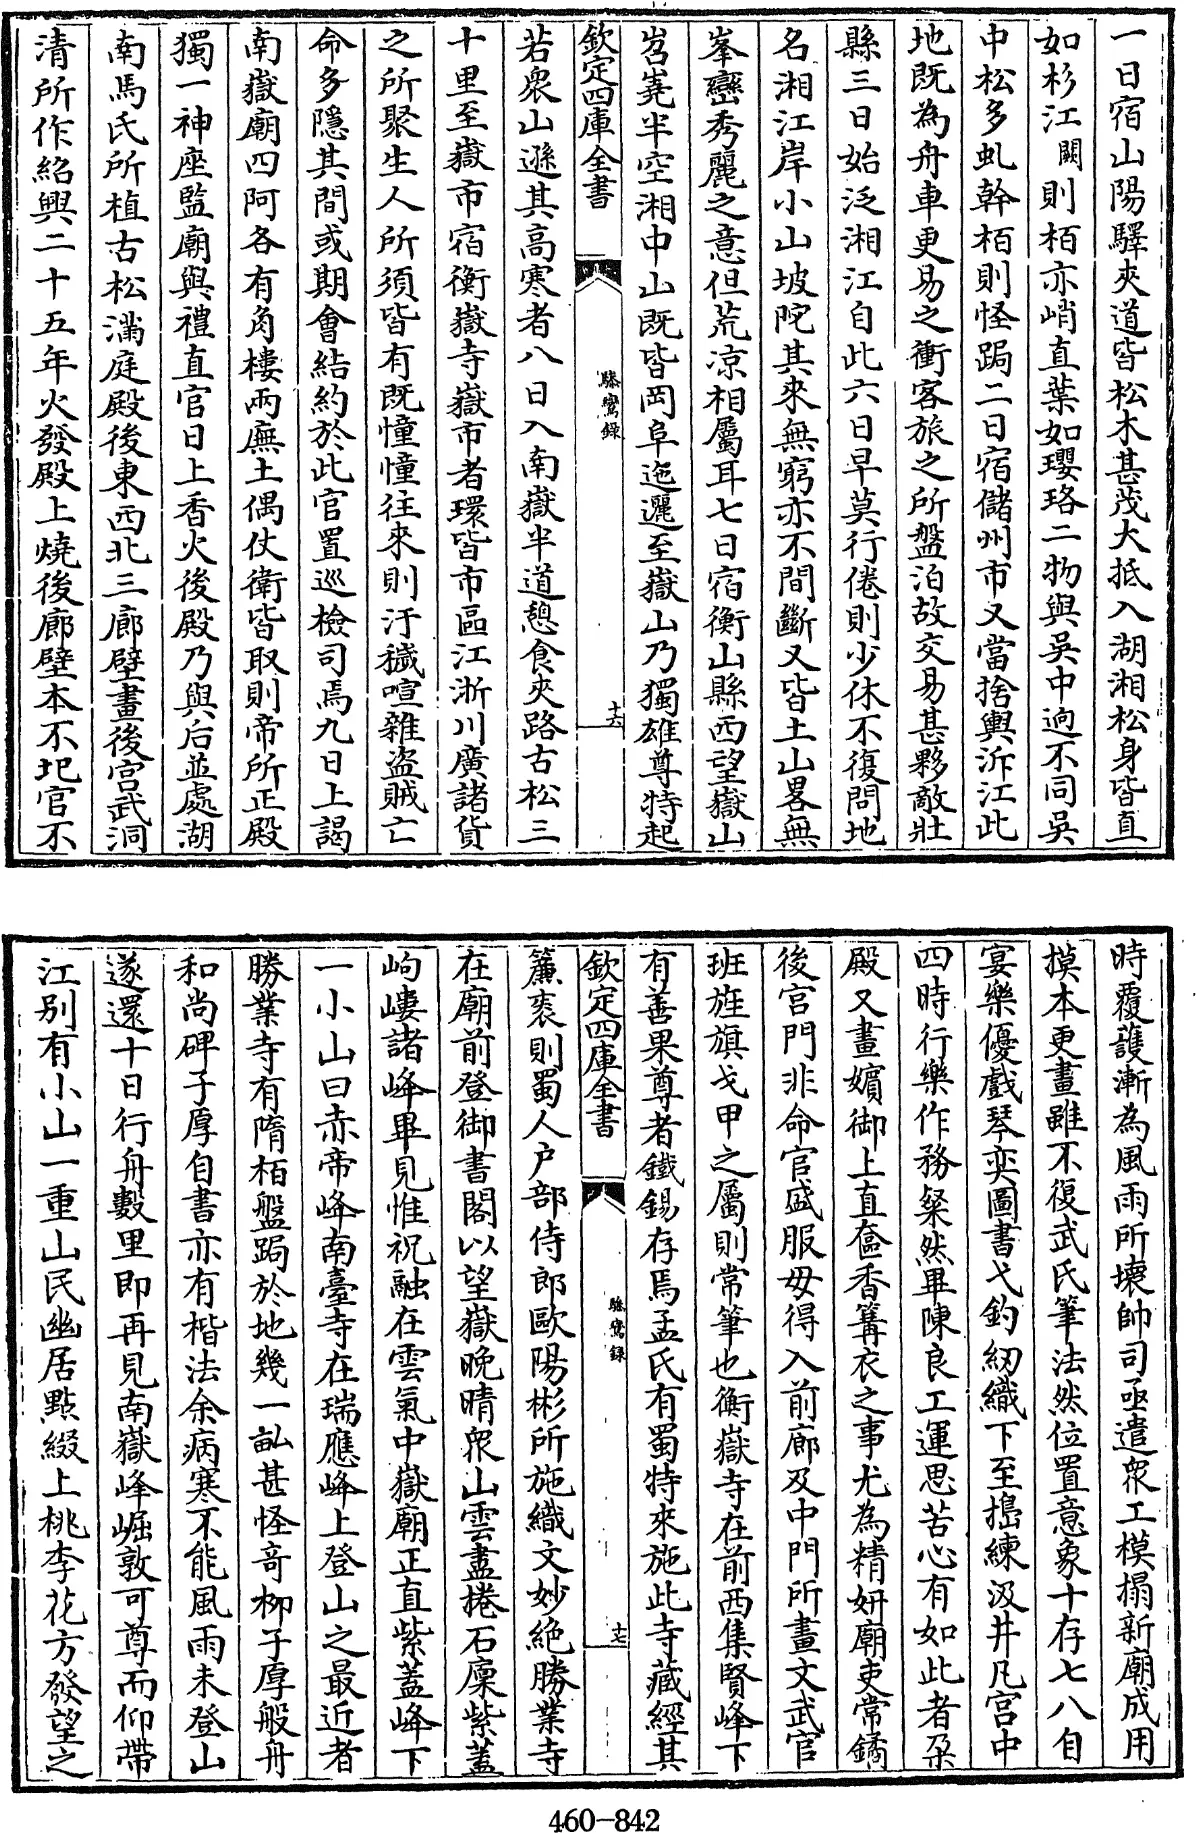 一日宿山陽驛夾道皆松木甚茂大抵入湖湘松身皆直
如杉江闕則栢亦峭直葉如瓔珞二物與吳中逈不同吳
中松多虬幹栢則怪跼二日宿儲州市又當捨輿泝江此
地既為舟車更易之衝客旅之所盤泊故交易甚夥敵壯
縣三日始泛湘江自此六日早莫行倦則少休不復問地
名湘江岸小山坡陀其來無窮亦不間斷又皆土山畧無
峯巒秀麗之意但荒凉相屬耳七日宿衡山縣西望嶽山
岧嶤半空湘中山既皆岡阜迤邐至嶽山乃獨雄尊特起
欽定四庫全書
驂鸞錄
十六
若衆山遜其高寒者八日入南嶽半道憩食夾路古松三
十里至嶽市宿衡嶽寺嶽市者環皆市區江浙川廣諸貨
之所聚生人所須皆有既憧憧往來則汙穢喧雜盜賊亡
命多隱其間或期會結約於此官置巡檢司焉九日上謁
南嶽廟四阿各有角樓兩廡土偶仗衛皆取則帝所正殿
獨一神座監廟與禮直官日上香火後殿乃與后並處湖
南馬氏所植古松滿庭殿後東西北三廊壁畫後宮武洞
清所作紹興二十五年火發殿上燒後廊壁本不圮官不
時覆護漸為風雨所壞帥司亟遣衆工模搨新廟成用
摸本更畫雖不復武氏筆法然位置意象十存七八自
宴樂優戲琴奕圖書弋釣紉織下至搗練汲井凡宮中
四時行樂作務粲然畢陳良工運思苦心有如此者朶
殿又畫嬪御上直奩香篝衣之事尤為精妍廟吏常鐍
後宮門非命官盛服毋得入前廊及中門所畫文武官
班旌旗戈甲之屬則常筆也衡嶽寺在前西集賢峰下
有善果尊者鐵錫存焉孟氏有蜀特來施此寺藏經其
欽定四庫全書
驂鸞錄
十七
簾裘則蜀人户部侍郎歐陽彬所施織文妙絶勝業寺
在廟前登御書閣以望嶽晚晴衆山雲盡捲石廩紫蓋
岣嶁諸峰畢見惟祝融在雲氣中嶽廟正直紫蓋峰下
一小山曰赤帝峰南臺寺在瑞應峰上登山之最近者
勝業寺有隋栢盤跼於地幾一畝甚怪竒柳子厚般舟
和尚碑子厚自書亦有楷法余病寒不能風雨未登山
遂還十日行舟數里即再見南嶽峰崛敦可尊而仰帶
江别有小山一重山民幽居點綴上桃李花方發望之
460-842